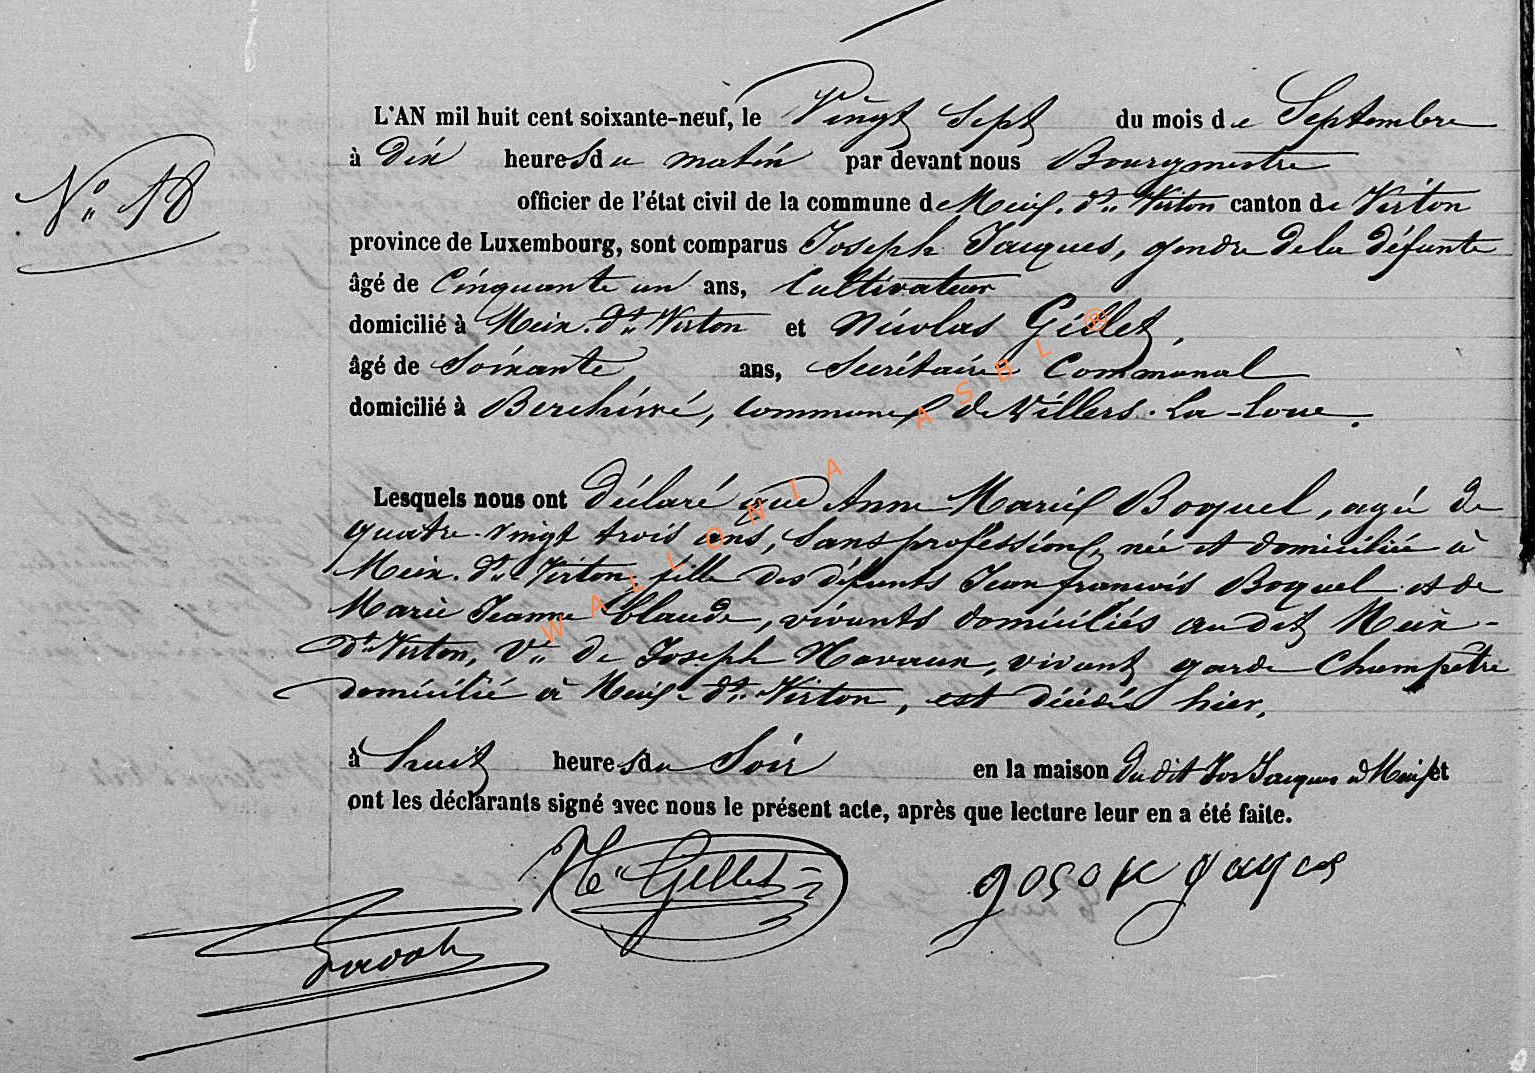 L'AN mil huit cent soixante-neuf, le Vingt Sept du mois de Septembre
N° 18
à dix heures du matin par devant nous Bourgmestre
officier de l'état civil de la commune de Meix dt Virton canton de Virton
province de Luxembourg, sont comparus Joseph Jacques, gendre de la défunte
âgé de Cinquante un ans, Cultivateur
domicilié à Meix dt Virton et Nicolas Gillet,
âgé de Soixante ans, Secrétaire Communal
domicilié à Berchiwé, commune de Villers-La-Loue.
Lesquels nous ont déclaré que Anne Marie Boquel, agée de
quatre-vingt trois ans, Sans profession, née et domiciliée à
Meix dt Virton, fille des défunts Jean françois Boquel et de
Marie Jeanne Claude, vivants domiciliés au dit Meix-
dt Virton, Ve de Joseph Navaux, vivant garde Champêtre
domicilié à Meix-dt Virton, est décédée hier,
à huit heures du Soir en la maison du dit Jos Jacques à Meix et
ont les déclarants signé avec nous le présent acte, après que lecture leur en a été faite.
Gillet
WALLONIA ASBL ®